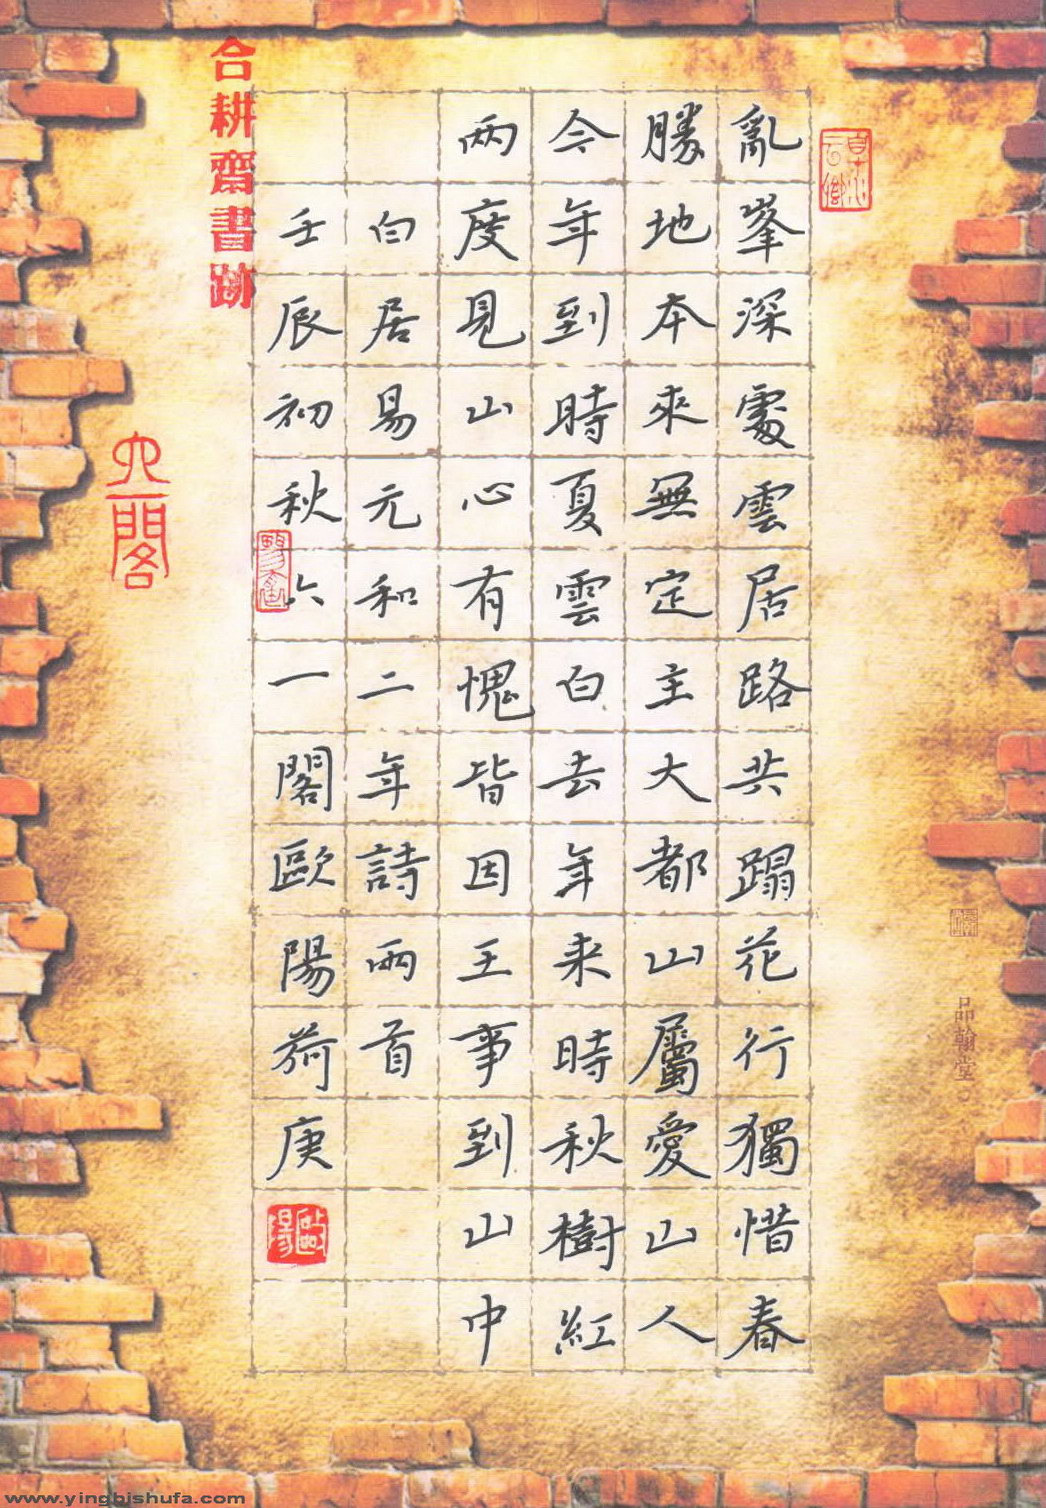 亂峯深處雲居路共蹋花行獨惜春
勝地本來無定主大都山屬愛山人
今年到時夏雲白去年来時秋樹紅
兩度見山心有愧皆因王事到山中
白居易元和二年詩兩首
壬辰初秋六一閣歐陽荷庚
合耕齋書跡
六一閣
品翰堂
歐陽
www.yingbishufa.com